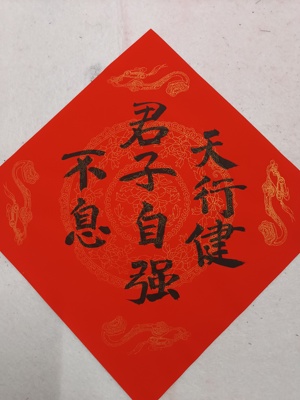 天行健
君子自强
不息